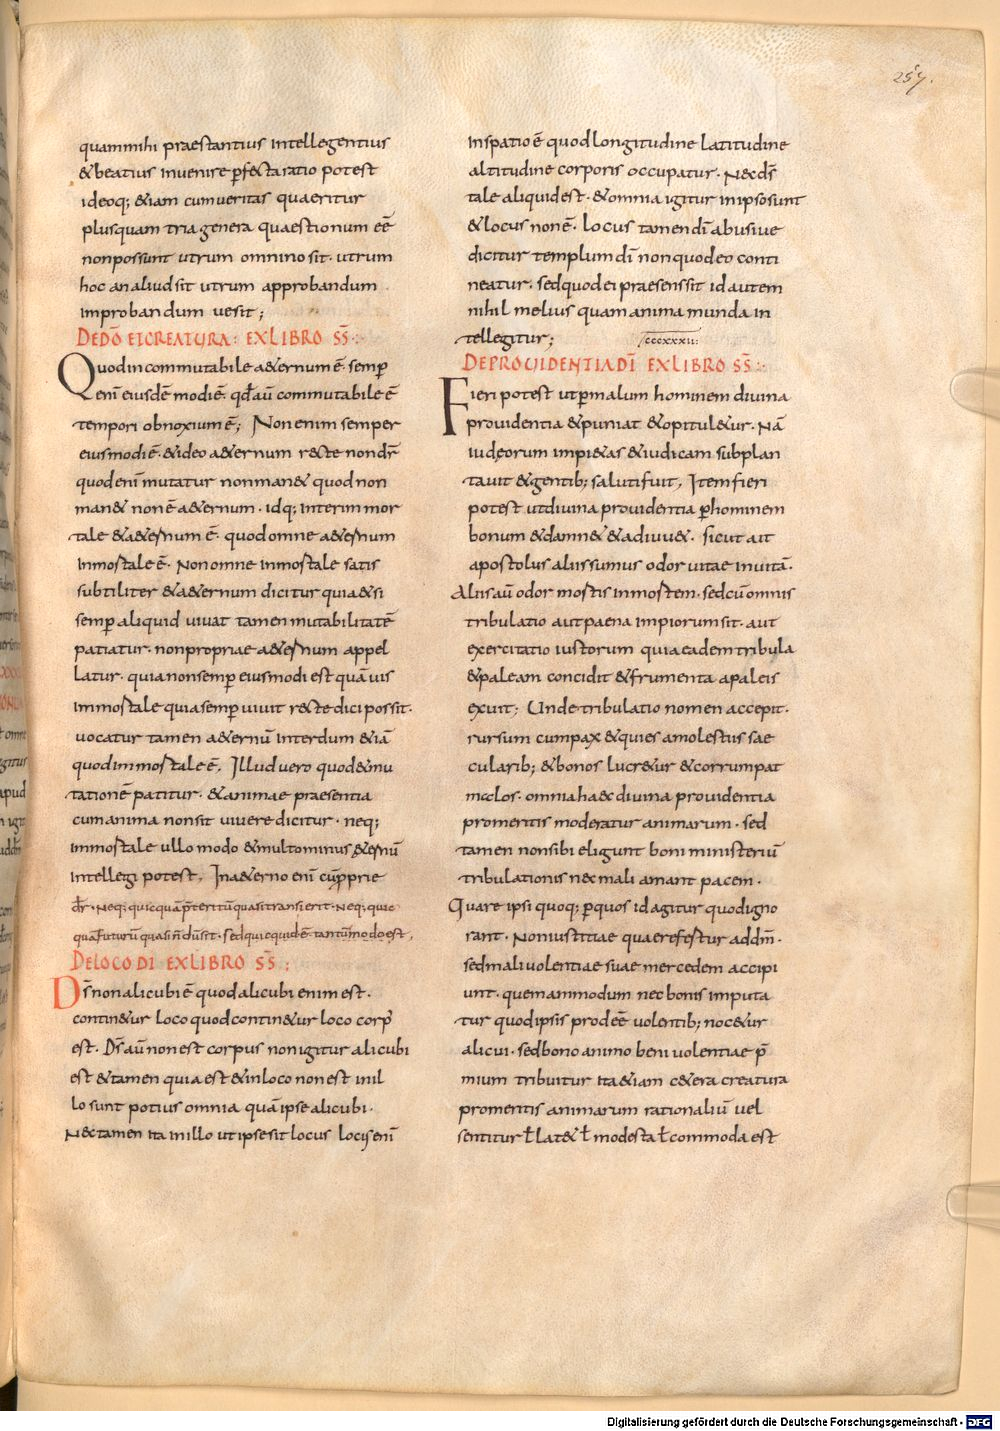 257.
quam mihi praestantius intellegentius
& beatius invenire pfecta ratio potest
ideoq; &iam cum veritas quaeritur
plusquam tria genera quaestionum eē
non possunt utrum omnino sit · utrum
hoc an aliud sit utrum approbandum
improbandum vesit ;
DE DŌ ET CREATURA : EX LIBRO SS̄ :·
Quod incommutabile aeternum ē · semp
enī eiusdē modi ē · qd aū commutabile ē
tempori obnoxium ē ; Non enim semper
eiusmodi ē · & ideo aeternum recte non dr̄
quod enī mutatur non man& quod non
man& non ē aeternum · idq; interim mor
tale & aeternum ē · quod omne aeternum
inmortale ē · Non omne inmortale satis
subtiliter & aeternum dicitur quia & si
semp aliquid vivat tamen mutabilitatē
patiatur · non propriae aeternum appel
latur · quia non semp eiusmodi est quā uis
immortale quia semp vivit recte dici possit ·
vocatur tamen aeternū interdum &iā
quod inmortale ē . Illud vero quod & mu
tationē patitur · & animae praesentia
cum anima non sit vivere dicitur · neq;
immortale ullo modo & multo minus aeternū
intellegi potest . In aeterno enī cū pprie
dr̄ · Neq; quicquā p̄teritū quasi transierit · Neq; quic
quā futurū quasi n̄dū sit · sed quicquid ē tantūmodo est ,
DE LOCO DI EX LIBRO SS̄ ;
Ds̄ non alicubi ē quod alicubi enim est ·
contin&ur loco quod contin&ur loco corp
est · Ds̄ aū non est corpus non igitur alicubi
est & tamen quia est & in loco non est in il
lo sunt potius omnia quā ipse alicubi ·
Nec tamen ita in illo ut ipse sit locus locis enī
in spatio ē quod longitudine latitudine
altitudine corporis occupatur · Nec ds̄
tale aliquid est · & omnia igitur in ipso sunt
& locus non ē · Locus tamen dī abusive
dicitur templum dī non quod eo conti
neatur · sed quod ei praesens sit id autem
nihil melius quam anima munda in
tellegitur ;
ccccxxxii :
DE PROVIDENTIA DĪ EX LIBRO SS̄ :·
Fieri potest ut p malum hominem divina
providentia & puniat & opitul&ur · Nā
iudęorum impi&as & iudicam supplan
tavit & gentib; saluti fuit , Item fieri
potest ut divina providentia p hominem
bonum & damn& & adiuu& · sicut ait
apostolus aliis sumus odor vitae in vitā ·
Aliis aū odor mortis in mortem · sed cū omnis
tribulatio aut paena impiorum sit · aut
exercitatio iustorum quia eadem tribula
& paleam concidit & frumenta a paleis
exuit ; Unde tribulatio nomen accepit ·
rursum cum pax & quies a molestiis sae
cularib; & bonos lucr&ur & corrumpat
malos · omnia haec divina providentia
pro meritis moderatur animarum · sed
tamen non sibi eligunt boni ministeriū
tribulationis nec mali amant pacem ·
Quare ipsi quoq; p quos id agitur quod igno
rant · Non iustitiae quae refertur ad dm̄ ·
sed malivolentiae suae mercedem accipi
unt · quemammodum nec bonis imputa
tur quod ipsis prodeē volentib; noc&ur
alicui · sed bono animo benivolentiae p̄
mium tribuitur ita &iam c&era creatura
pro meritis animarum rationaliū vel
sentitur ł lat& ł modesta ł commoda est
Digitalisierung gefördert durch die Deutsche Forschungsgemeinschaft - DFG